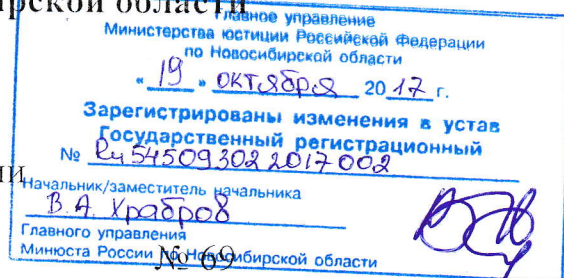 рской области
Главное управление
Министерства юстиции Российской Федерации
по Новосибирской области
« 19 » октября 2017 г.
Зарегистрированы изменения в устав
Государственный регистрационный
№ Ru545093022017002
ии
Начальник/заместитель начальника
В.А. Храбров
Главного управления
Минюста России по Новосибирской области
№ 69